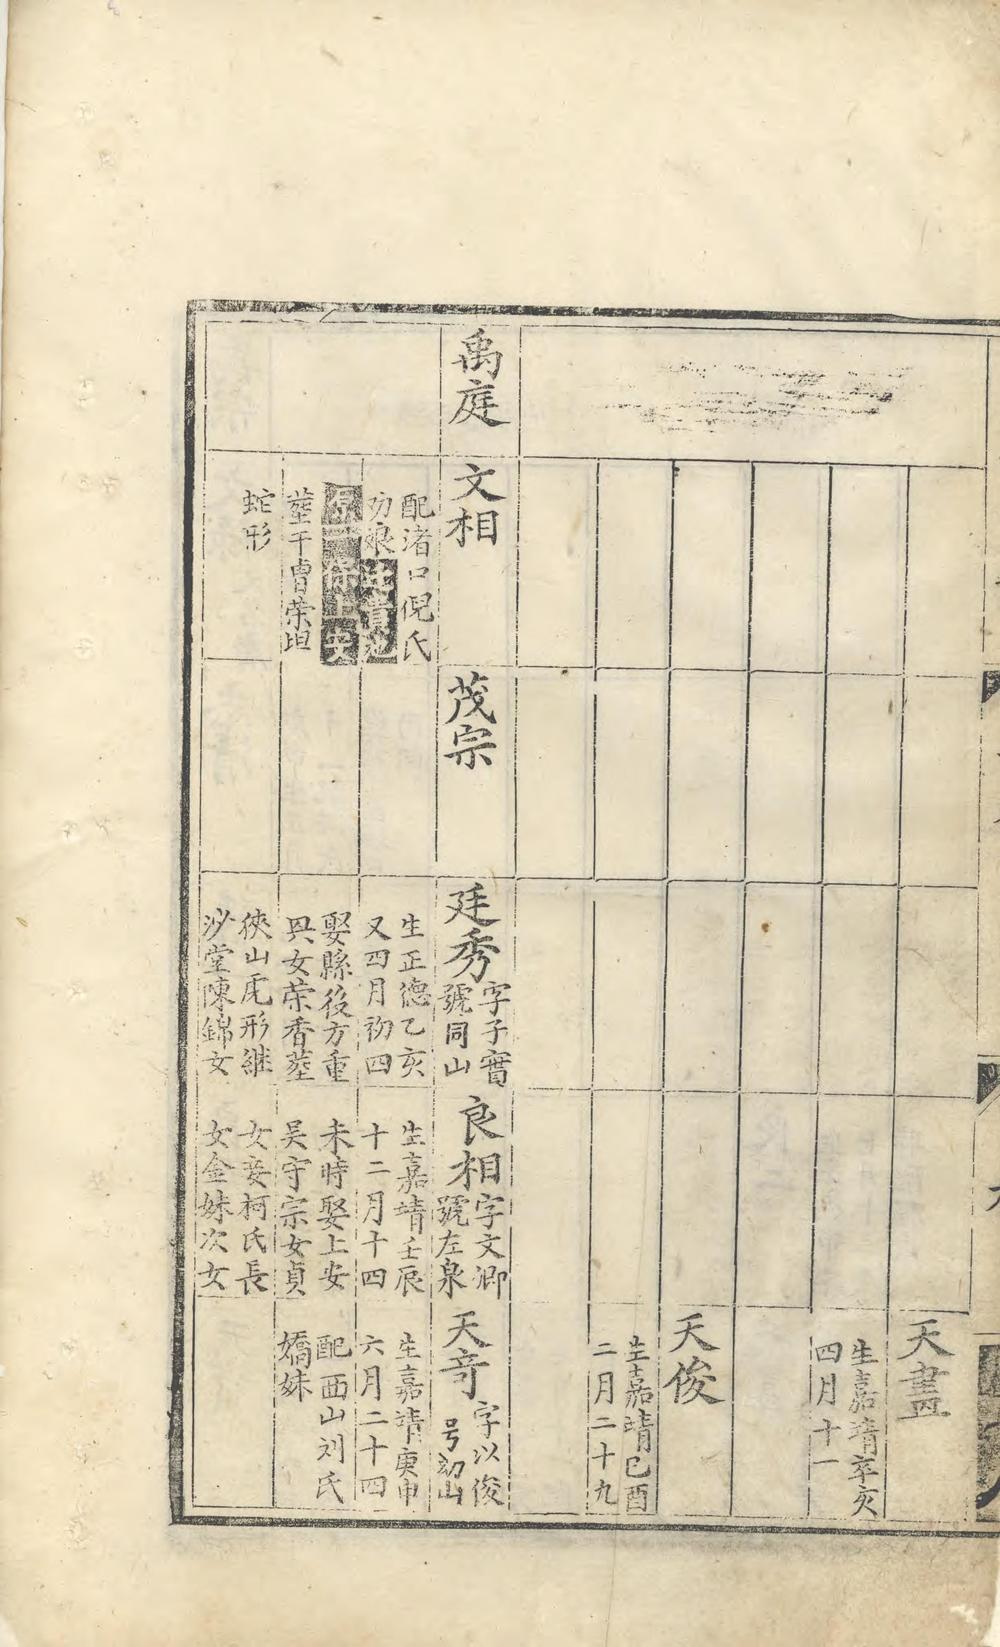 天畫
生嘉靖辛亥
四月十一
天俊
生嘉靖己酉
二月二十九
禹庭
文相
配渚口倪氏
葬干曹荣坦
蛇形
茂宗
廷秀
字子實
號同山
生正德乙亥
又四月初四
娶縣後方重
興女荣香葬
徠山虎形継
沙堂陳錦女
良相
字文卿
號左泉
生嘉靖壬辰
十二月十四
未時娶上安
吴守宗女貞
女妾柯氏長
女金妹次女
天竒
字以俊
号幼山
生嘉靖庚申
六月二十四
配西山刘氏
嬌妹